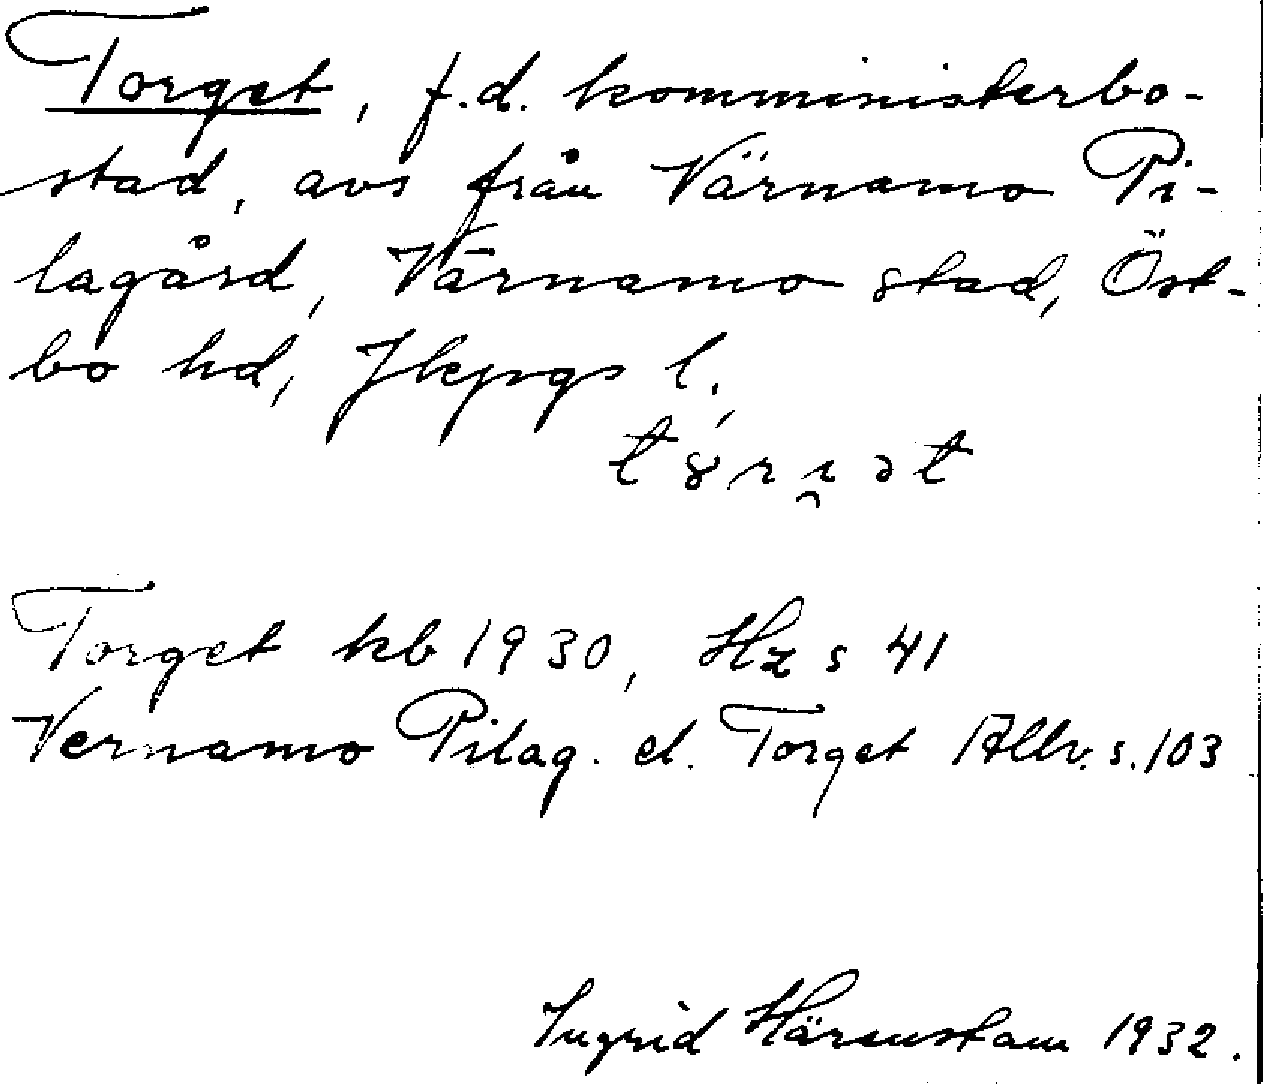 Torget, f.d. komministerbo-
stad, avs från Värnamo Pi-
lagård, Värnamo stad, Öst-
bo hd, Jkpgs l.,
Torget kb 1930, Hz s 41
Vernamo Pilag. el. Torget Allv. s. 103
Ingrid Härenstam 1932.